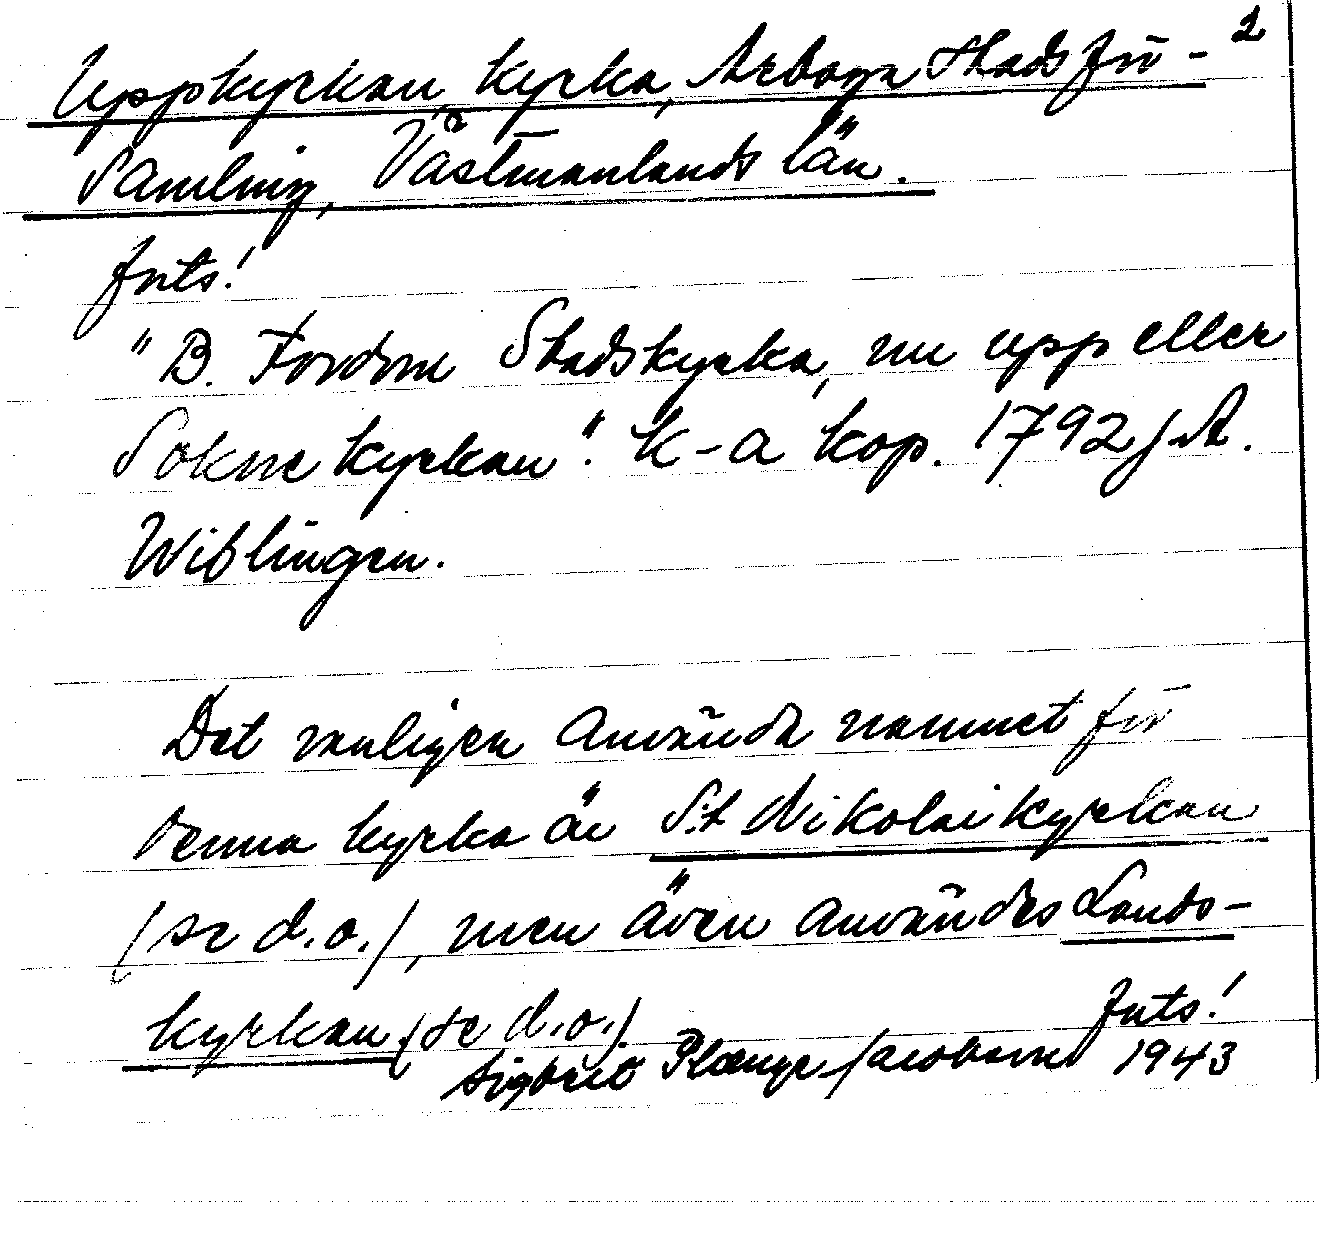 2
Uppkyrkan, kyrka, Arboga Stadsför-
samling, Västmanlands län.
forts!
"B. Fordom Stadskyrka, nu upp eller
Sokne kyrkan". K-a kop. 1792 J.A.
Wiblingen.
Det vanligen använda namnet för
denna kyrka är S:t Nikolai kyrkan
(se d.o.), men även användes Lands-
kyrkan (se d.o.) forts!
Sigbrit Plænge Jacobson 1943